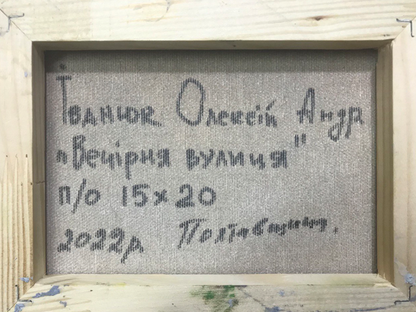 Іванюк Олексій Андр
"Вечірня вулиця"
п/о 15х20
2022р Полтавщина.